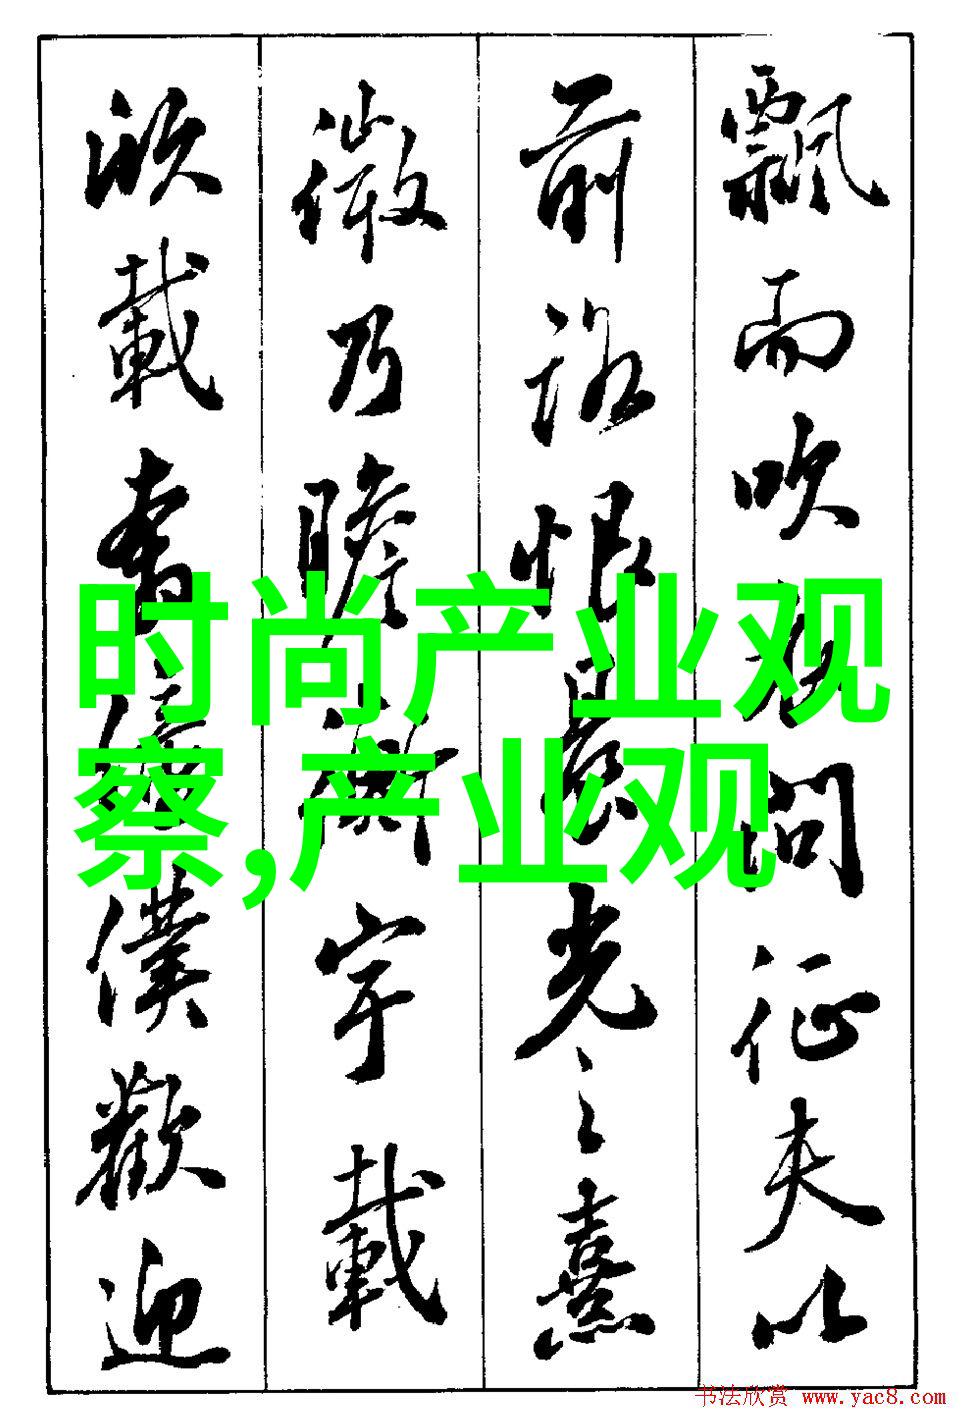 飄而吹衣問征夫以
前路恨晨光之熹
微乃瞻衡宇載
欣載奔僮僕歡迎
时尚产业观
察,产业观
书法欣赏 www.yac8.com